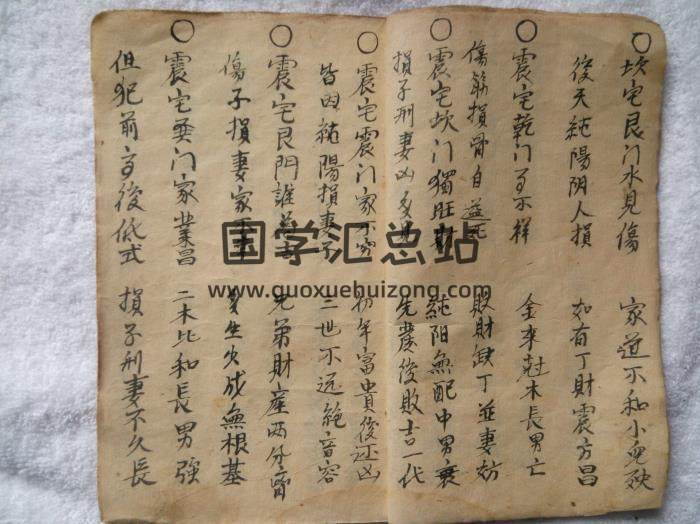 〇坎宅艮门水見傷 家道不和小兒殃
後天純陽阴人損 如有丁財震方昌
〇震宅乾门多不祥 金来尅木長男亡
傷筋損骨自 敗財缺丁並妻妨
〇震宅坎门獨旺財 純阳無配中男衰
損子刑妻凶多 先發後敗吉一代
〇震宅震门家不 初年富貴後还凶
皆因純陽損妻子 三世不远絕音容
〇震宅艮門誰 兄弟財產两分
傷子損妻家 多生少成無根基
〇震宅巽门家業昌 二木比和長男強
但犯前高後低式 損子刑妻不久長
国学汇总站
www.guoxuehuizong.com